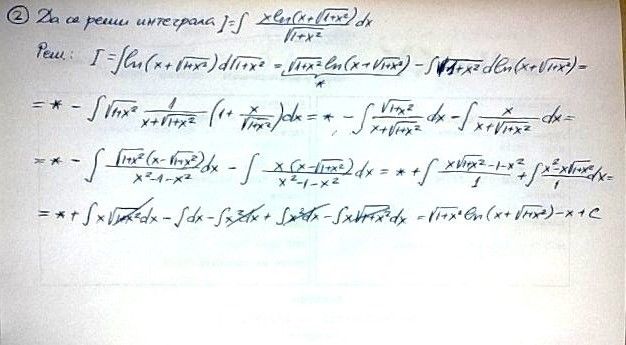 ② Да се реши интеграла I=∫ xln(x+√(1+x²))dx / √(1+x²)
Реш.: I=∫ln(x+√(1+x²))d√(1+x²) = √(1+x²) ln(x+√(1+x²)) - ∫√(1+x²) dln(x+√(1+x²)) =
*
= * - ∫√(1+x²) 1/(x+√(1+x²)) (1+ x/√(1+x²))dx = * - ∫ √(1+x²)/(x+√(1+x²)) dx - ∫ x/(x+√(1+x²)) dx =
= * - ∫ √(1+x²)(x-√(1+x²))/(x²-1-x²) dx - ∫ x(x-√(1+x²))/(x²-1-x²) dx = * + ∫ (x√(1+x²)-1-x²)/1 + ∫ (x²-x√(1+x²))/1 dx =
= * + ∫x√(1+x²)dx - ∫dx - ∫x²dx + ∫x²dx - ∫x√(1+x²)dx = √(1+x²) ln(x+√(1+x²)) - x + C